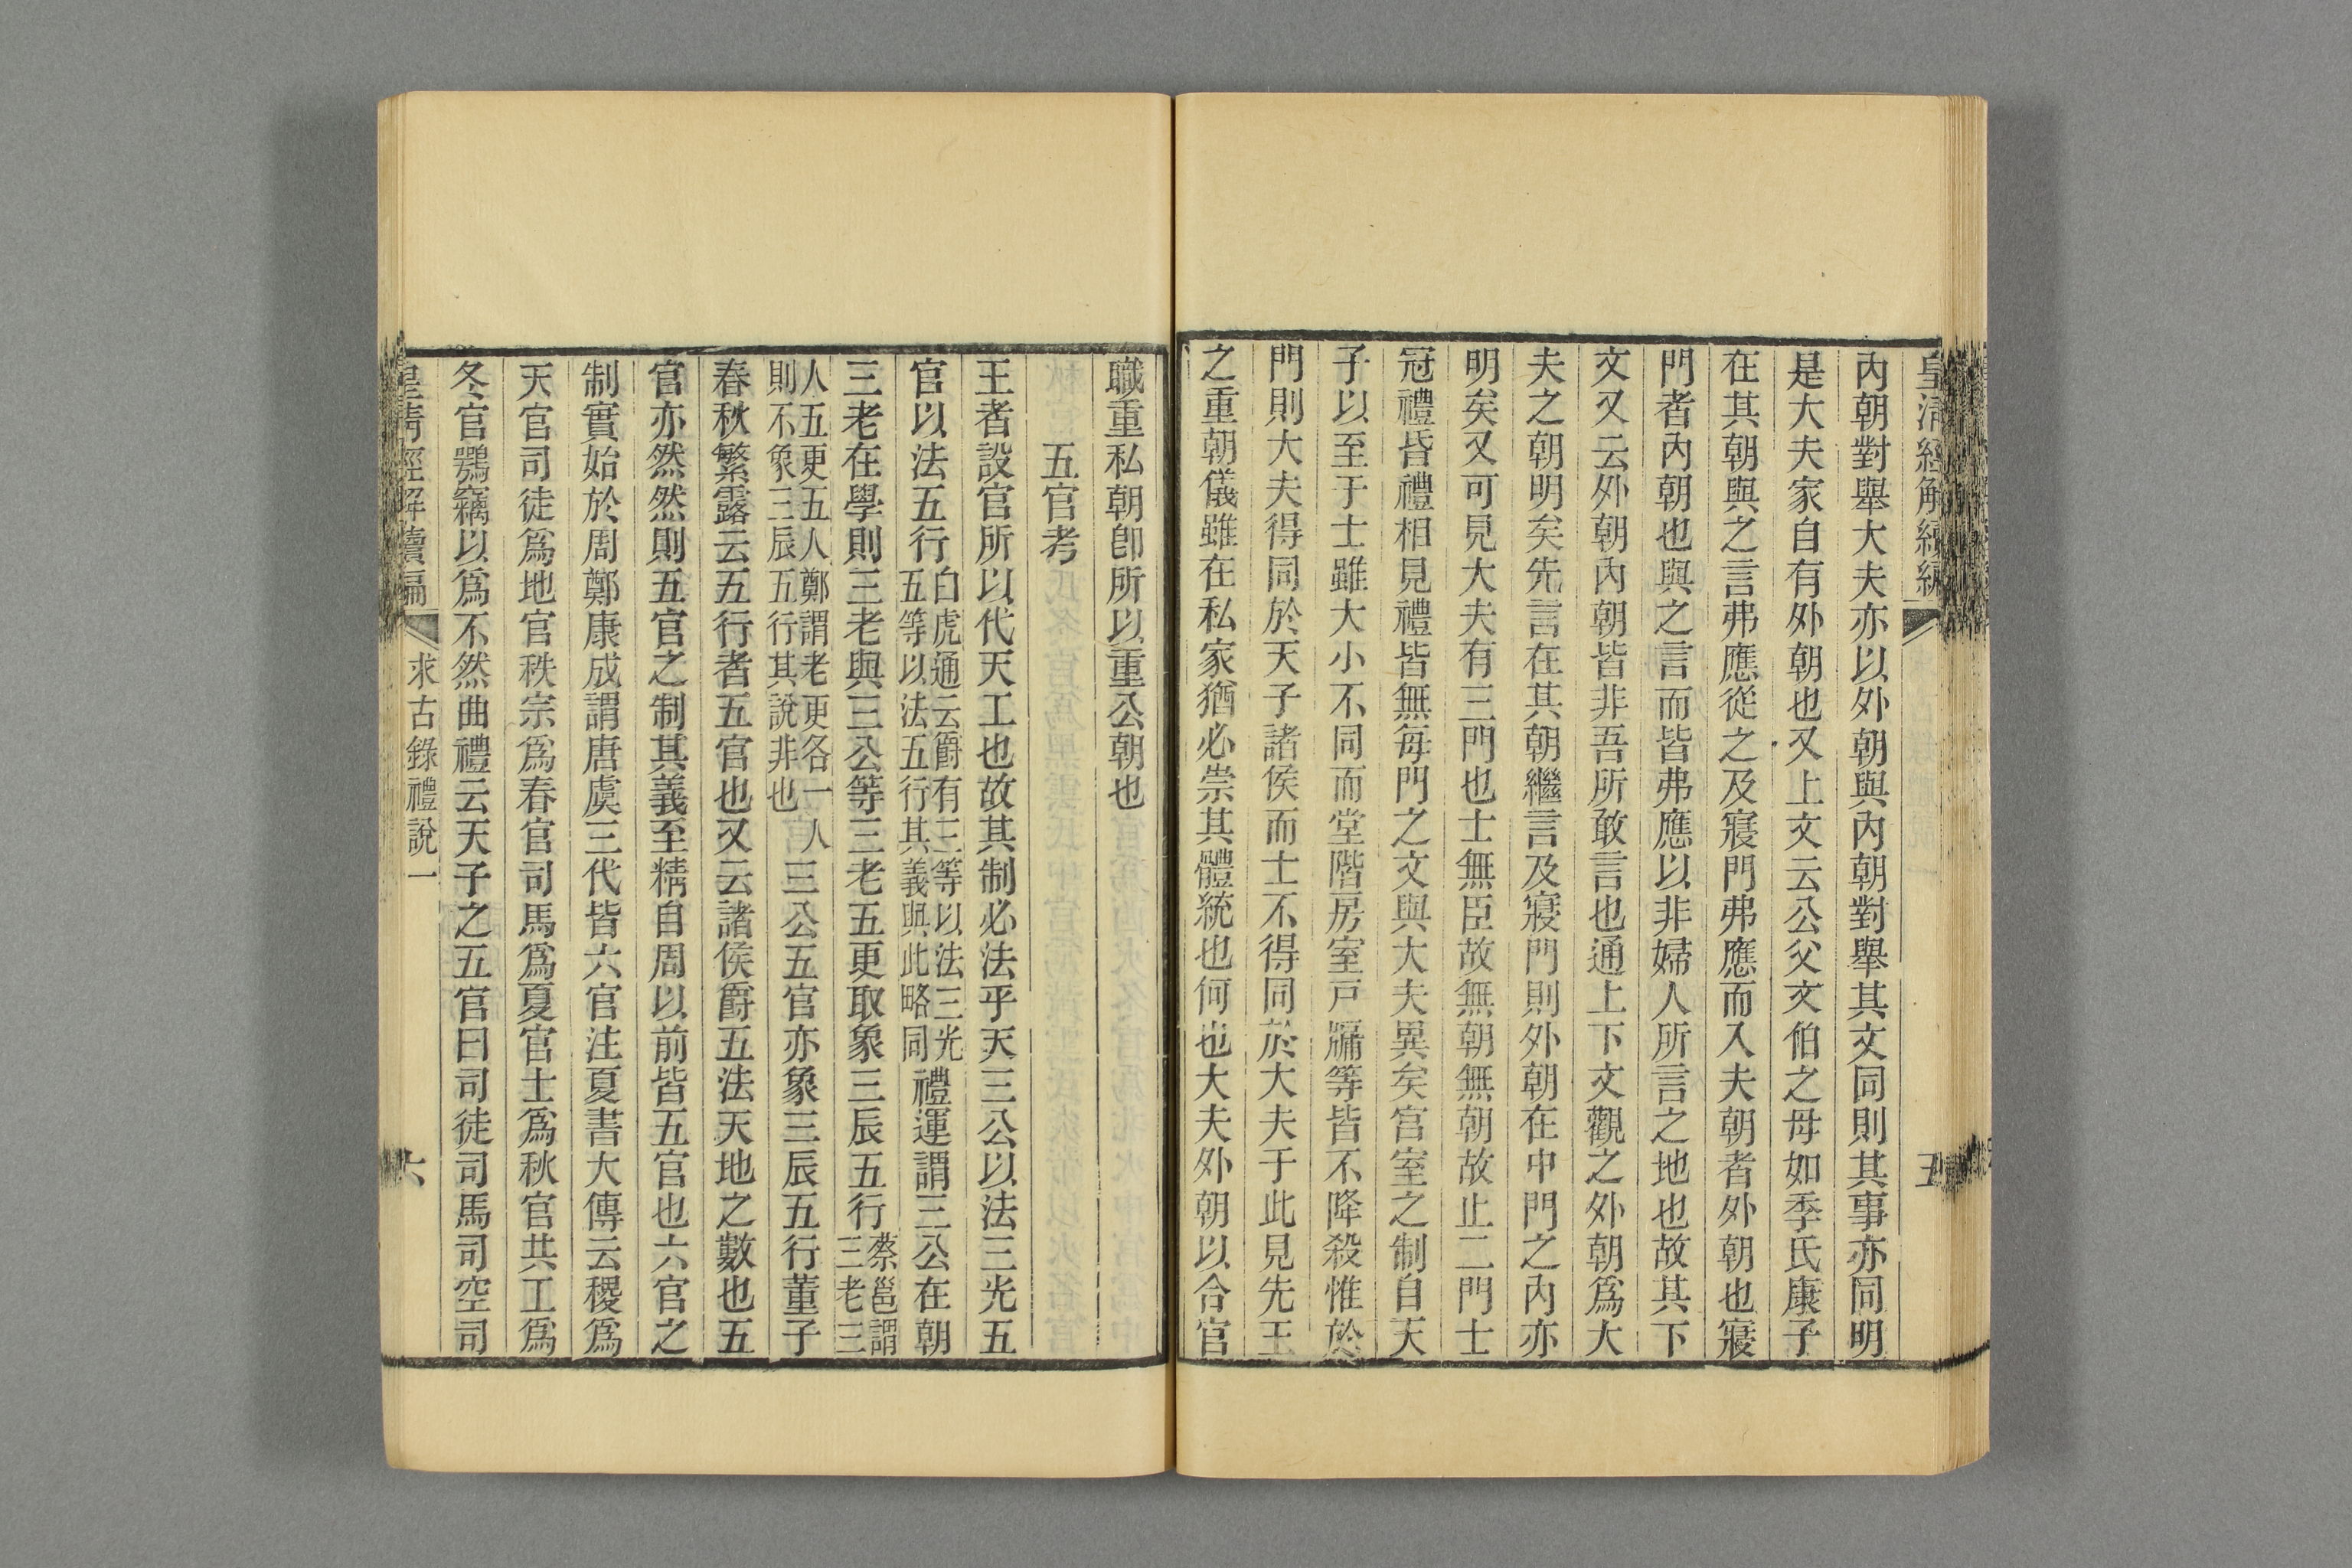 皇清經解續編
五
內朝對舉大夫亦以外朝與內朝對舉其文同則其事亦同明
是大夫家自有外朝也又上文云公父文伯之母如季氏康子
在其朝與之言弗應從之及寢門弗應而入夫朝者外朝也寢
門者內朝也與之言而皆弗應以非婦人所言之地也故其下
文又云外朝內朝皆非吾所敢言也通上下文觀之外朝爲大
夫之朝明矣先言在其朝繼言及寢門則外朝在中門之內亦
明矣又可見大夫有三門也士無臣故無朝無朝故止二門士
冠禮昏禮相見禮皆無每門之文與大夫異矣宮室之制自天
子以至于士雖大小不同而堂階房室戸牖等皆不降殺惟於
門則大夫得同於天子諸侯而士不得同於大夫于此見先王
之重朝儀雖在私家猶必崇其體統也何也大夫外朝以合官
職重私朝卽所以重公朝也
五官考
王者設官所以代天工也故其制必法乎天三公以法三光五
官以法五行白虎通云爵有三等以法三光五等以法五行其義與此略同禮運謂三公在朝
三老在學則三老與三公等三老五更取象三辰五行蔡邕謂三老三
人五更五人鄭謂老更各一人則不象三辰五行其說非也三公五官亦象三辰五行董子
春秋繁露云五行者五官也又云諸侯爵五法天地之數也五
官亦然然則五官之制其義至精自周以前皆五官也六官之
制實始於周鄭康成謂唐虞三代皆六官注夏書大傳云稷爲
天官司徒爲地官秩宗爲春官司馬爲夏官士爲秋官共工爲
冬官鶚竊以爲不然曲禮云天子之五官曰司徒司馬司空司
皇清經解續編
求古錄禮說一
六